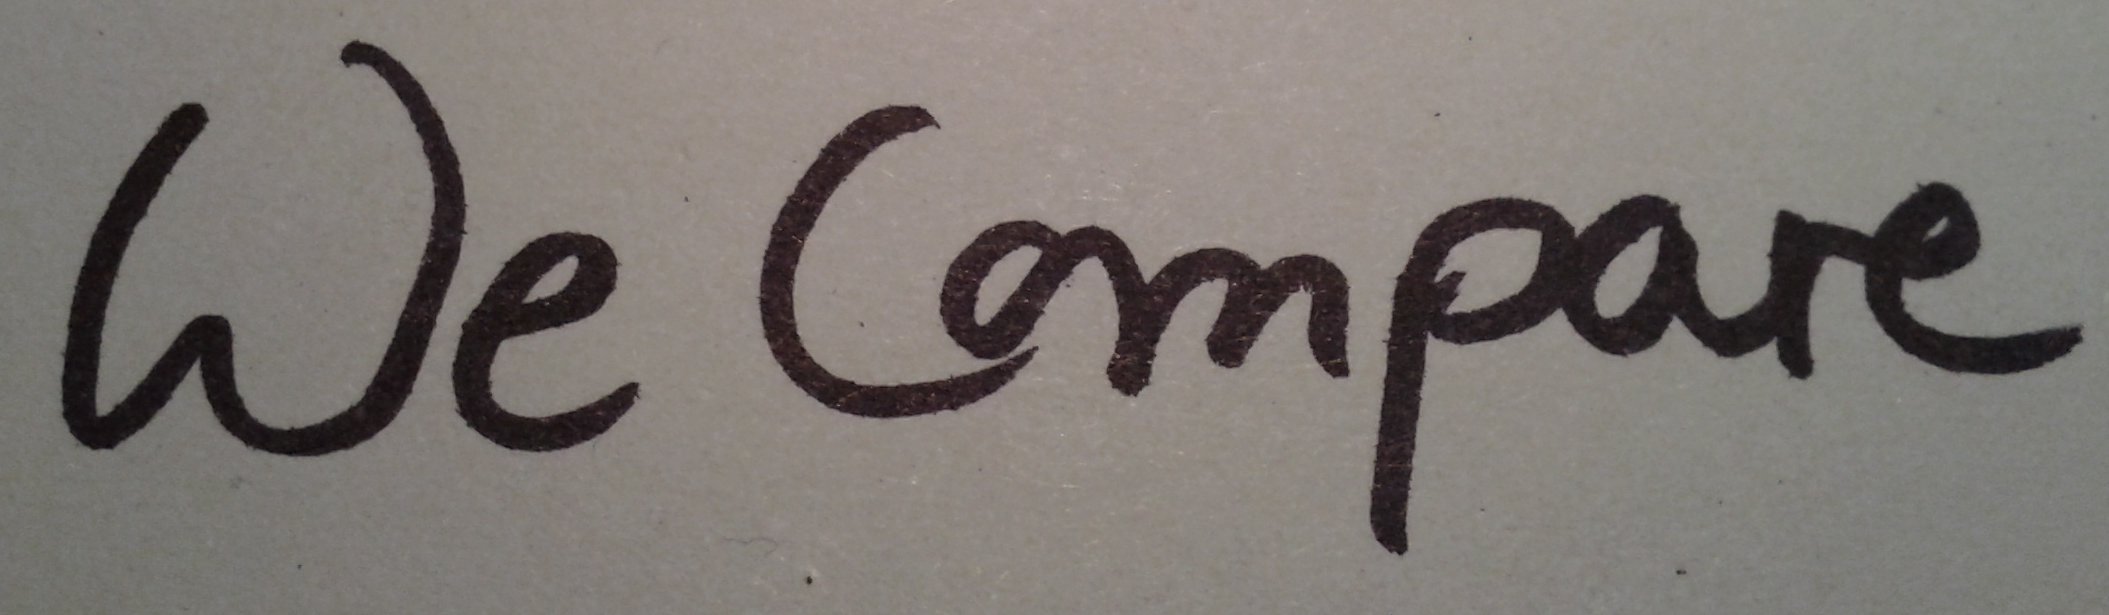 We Compare